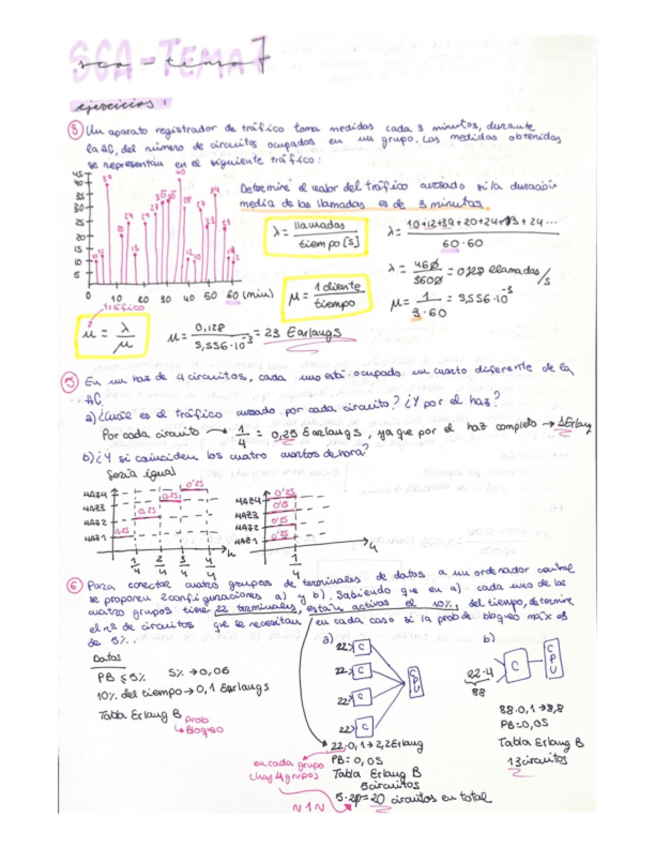 SCA - TEMA 7
sca - tema 7
ejercicios:
3 Un aparato registrador de tráfico toma medidas cada 3 minutos, durante
la HC, del número de circuitos ocupados en un grupo. Las medidas obtenidas
se representan en el siguiente tráfico:
45
40
35
30
25
20
15
10
5
0 10 20 30 40 50 60 (min)
Determine el valor del tráfico cursado si la duración
media de las llamadas es de 3 minutos.
λ = llamadas / tiempo [s]
λ = 10+12+39+20+24+13+24... / 60·60
λ = 460 / 3600 = 0,128 llamadas/s
μ = 1 cliente / tiempo
μ = 1 / 3·60 = 5,556·10⁻³
tráfico
u = λ / μ
u = 0,128 / 5,556·10⁻³ = 23 Earlangs
5 En un haz de 4 circuitos, cada uno está ocupado un cuarto diferente de la
HC.
a) ¿Cuál es el tráfico cursado por cada circuito? ¿Y por el haz?
Por cada circuito → 1/4 = 0,25 Earlangs, ya que por el haz completo → 1 Erlang
b) ¿Y si coinciden los cuatro cuartos de hora?
Sería igual
HAZ4 0'25
HAZ3 0,25
HAZ2 0,25
HAZ1 0,25
1/4 2/4 3/4 4/4 h
HAZ4 0'25
HAZ3 0'25
HAZ2 0'25
HAZ1 0'25
1/4 h
6 Para conectar cuatro grupos de terminales de datos a un ordenador central
se proponen 2 configuraciones a) y b). Sabiendo que en a) cada uno de los
cuatro grupos tiene 22 terminales, están activos el 10% del tiempo, determine
el nº de circuitos que se necesitan en cada caso si la prob de bloqueo máx es
de 5%.
Datos
PB ≤ 5% 5% → 0,05
10% del tiempo → 0,1 Earlangs
Tabla Erlang B
Prob
Bloqueo
a)
22 C
22 C
22 C
22 C
CPU
22·0,1 → 2,2 Erlang
PB = 0,05
Tabla Erlang B
5 circuitos
= 20 circuitos en total
en cada grupo
y hay 4 grupos
~1~
b)
22·4
88
C
CPU
88·0,1 → 8,8
PB = 0,05
Tabla Erlang B
13 circuitos